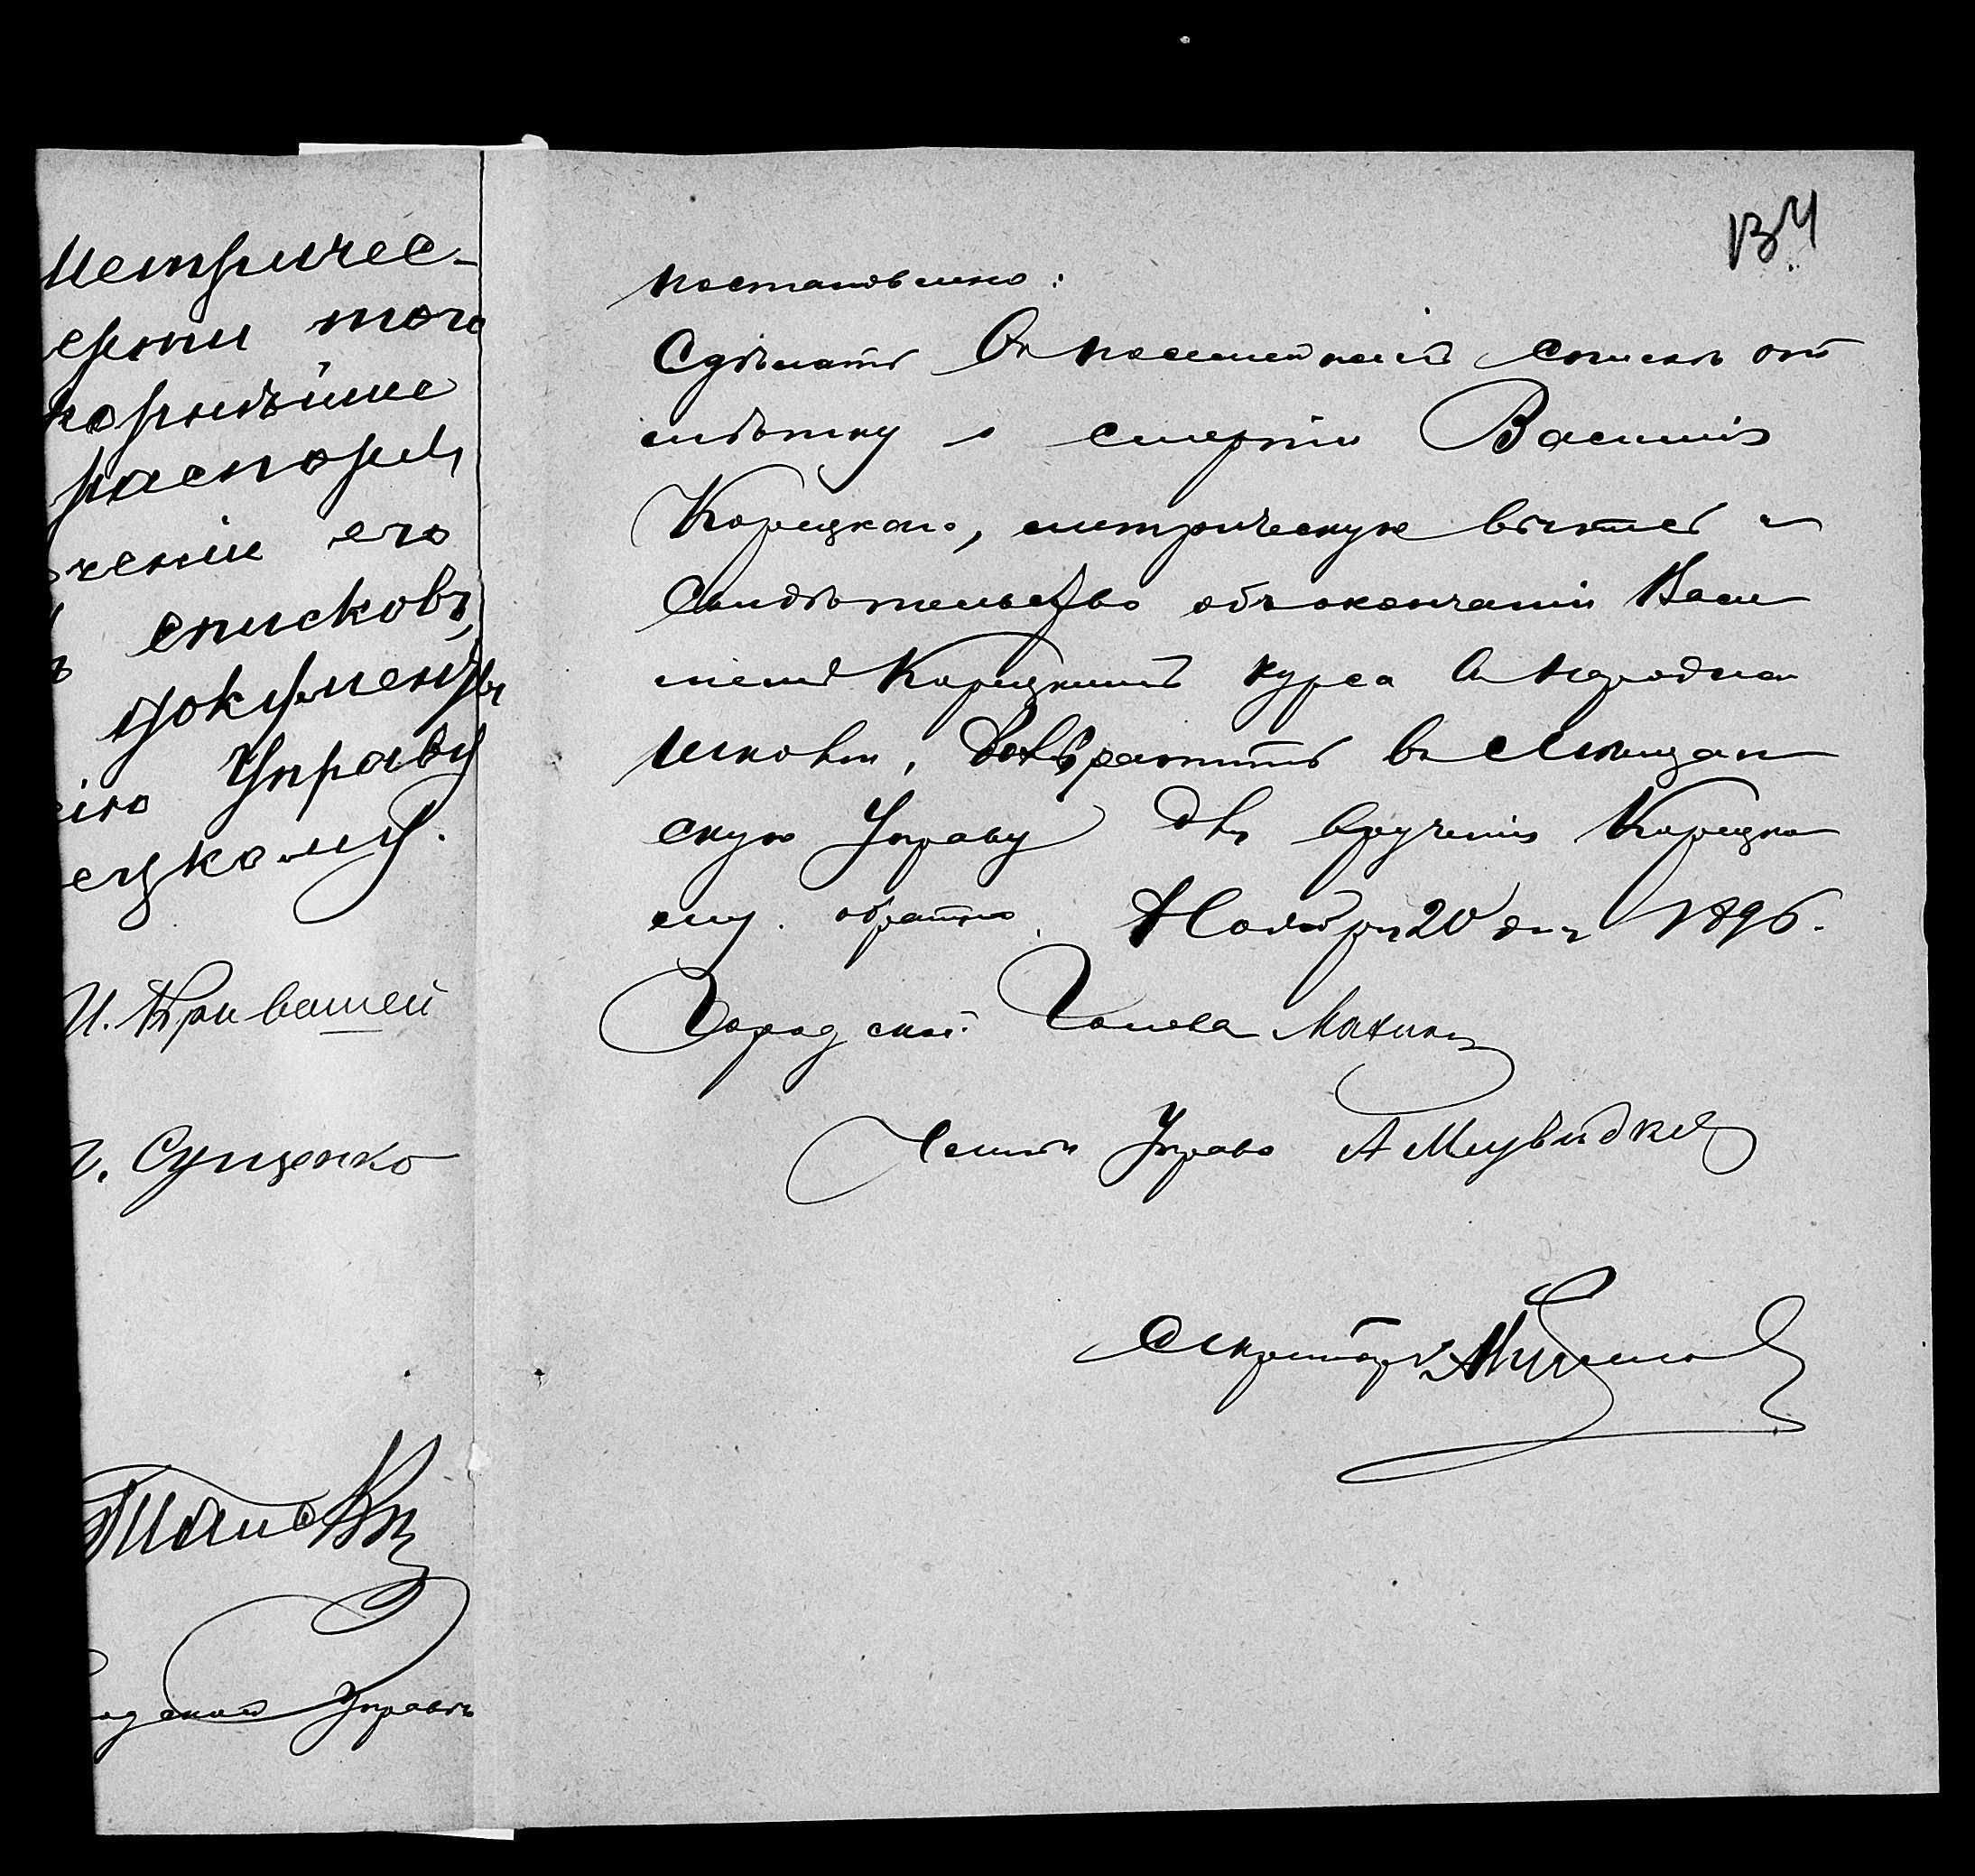 метричес-
ерти того
корнѣйше
распоря
ченіи его
списковъ,
документы
Управу
ецкому.
И. Кривашей
Сущенко
Управѣ
134
постановлено:
Сдѣлать въ посемейномъ спискѣ от
мѣтку о смерти Василія
Корецкаго, метрическую выпись и
Свидѣтельство объ окончаніи Васи
ліемъ Корецкимъ курса въ народной
школѣ, возвратить въ Мѣщан
скую Управу для врученія Корецко
му обратно. Ноября 20 дня 1896.
Городской Голова Махинъ
Членъ Управы А
Секретарь